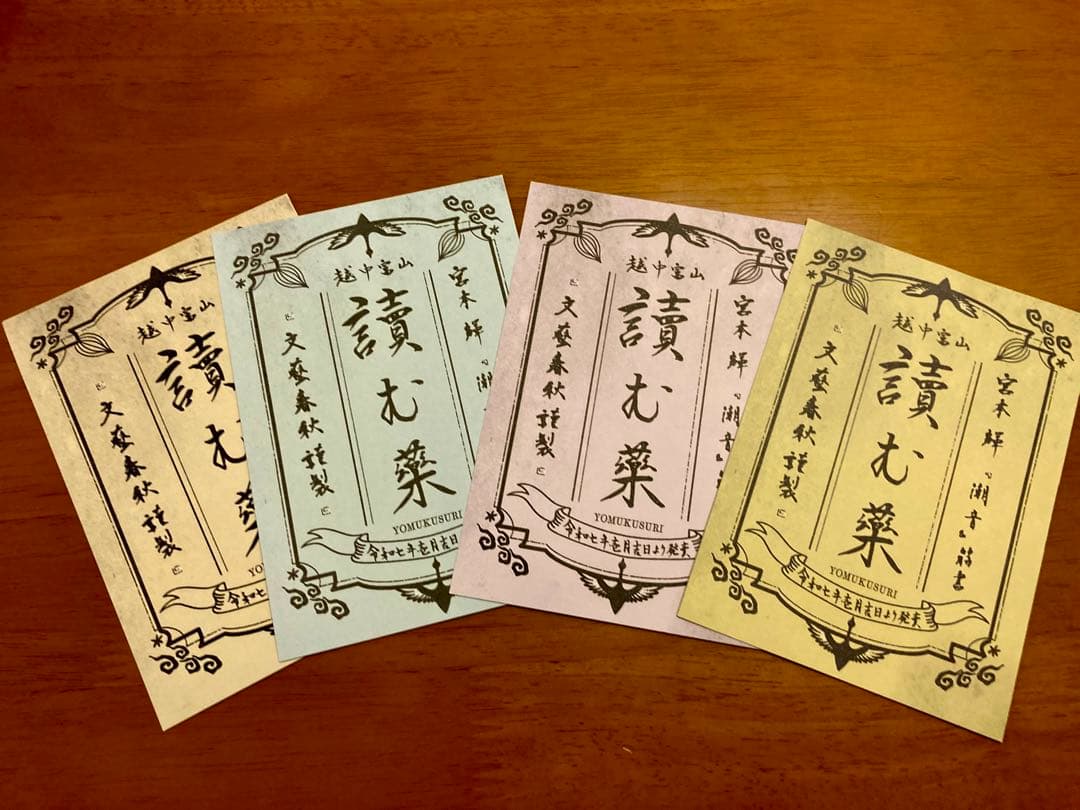 越中富山
讀む
文藝春秋謹製
YO
令和七
越中富山
宮本 輝 『潮
讀む藥
文藝春秋謹製
YOMUKUSURI
令和七年壱月吉日
越中富山
宮本 輝 『潮音』
讀む藥
文藝春秋謹製
YOMUKUSURI
令和七年壱月吉日より発売
越中富山
宮本 輝 『潮音』筋書
讀む藥
文藝春秋謹製
YOMUKUSURI
令和七年壱月吉日より発売